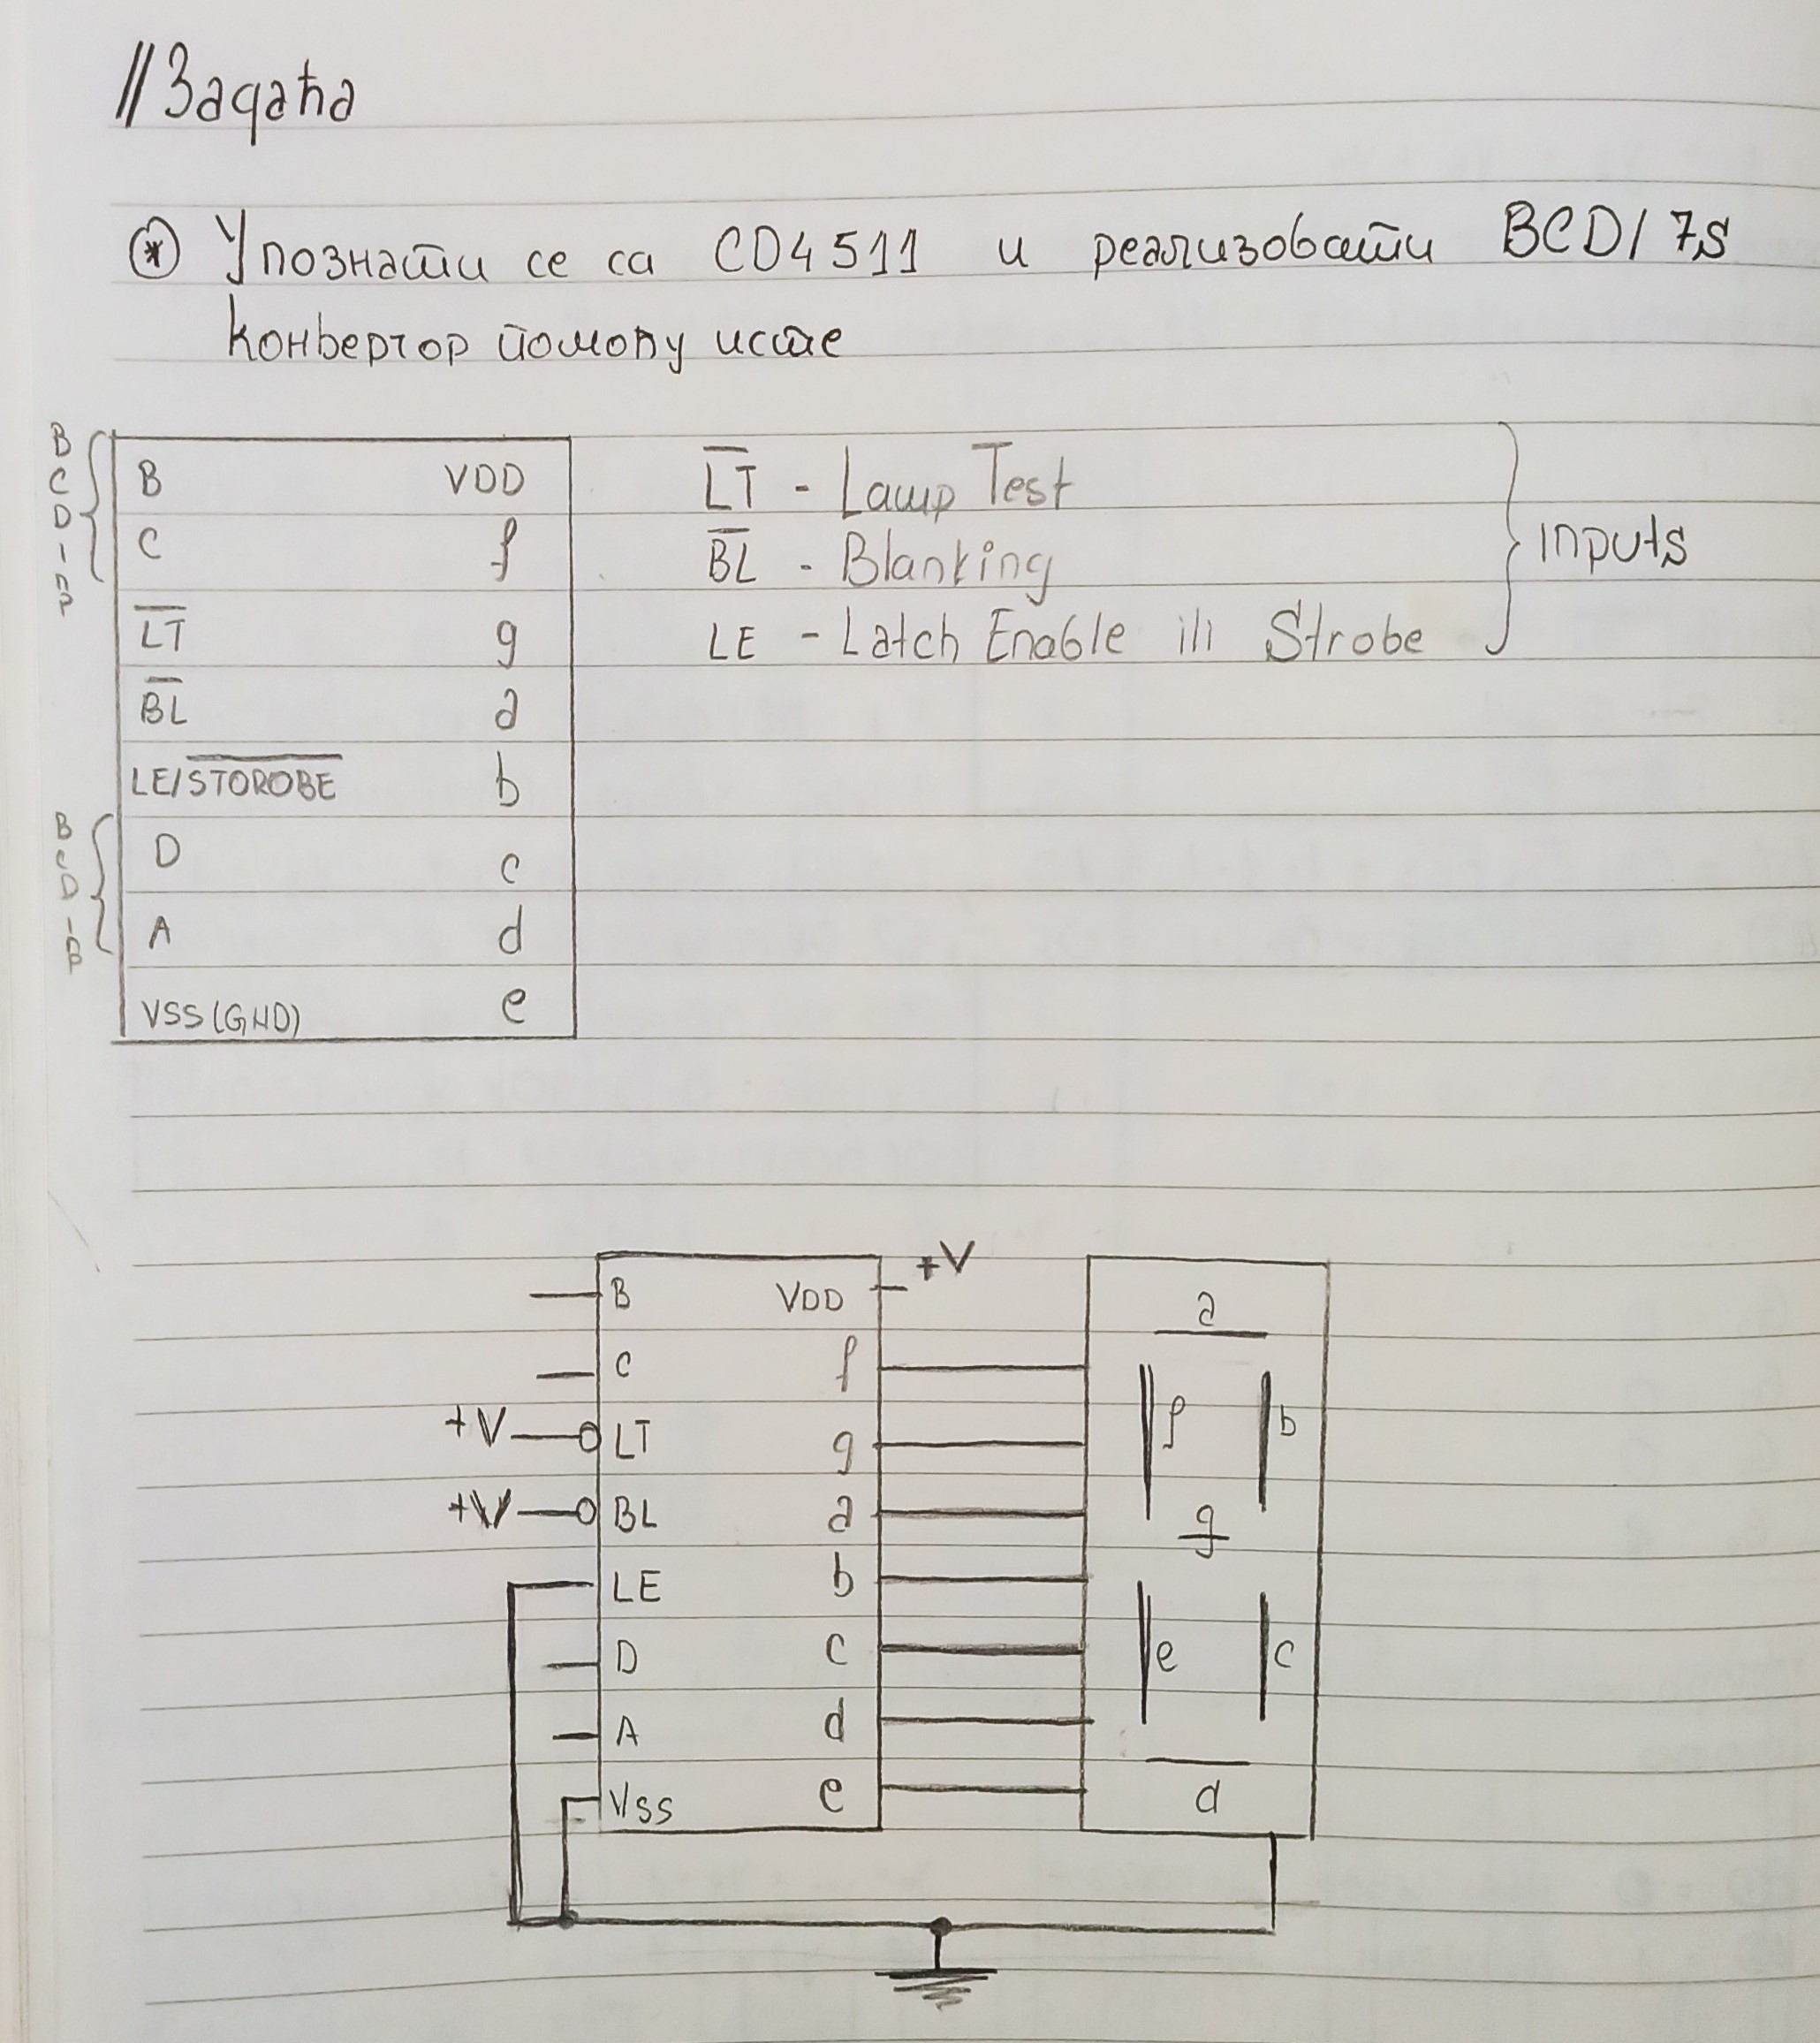 //Задаћа
* Упознати се са CD4511 и реализовати BCD/7s
конвертор помоћу исте
BCD-inp
B VDD
C f
L̅T̅ g
B̅L̅ a
LE/S̅T̅O̅R̅O̅B̅E̅ b
BCD-inp
D c
A d
VSS(GND) e
L̅T̅ - Lamp Test
B̅L̅ - Blanking
LE - Latch Enable ili Strobe
inputs
B VDD +V
C f
+V LT g
+V BL a
LE b
D c
A d
VSS e
a
f b
g
e c
d